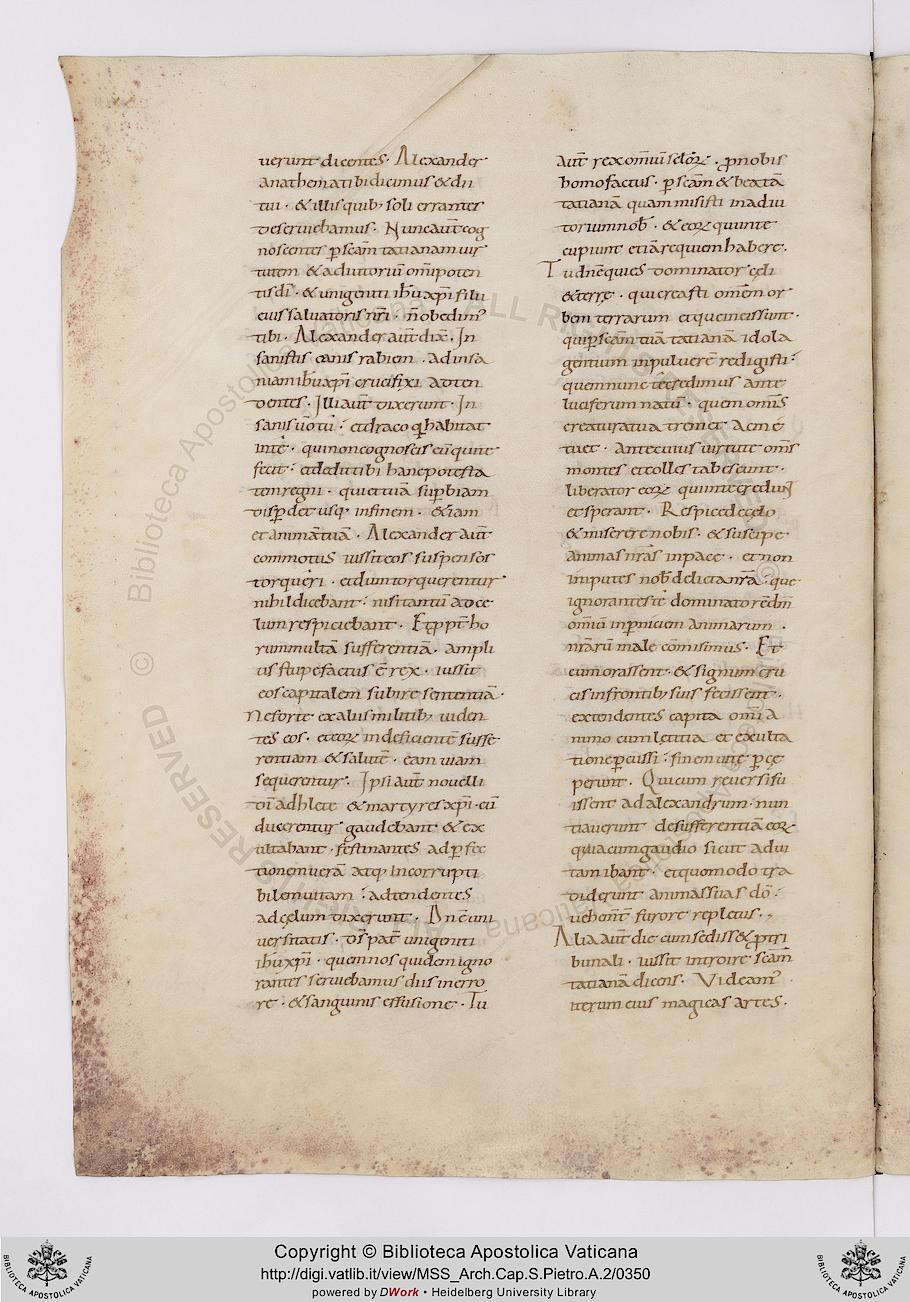 uerunt dicentes. Alexander
anathema tibi dicimus & dii
tui. & illis quib; soli errantes
deseruiebamus. Nunc aut̄ cog
noscentes p̄ sc̄am tatianam uir
tutem & adiutoriū om̄ipoten
tis dī. & unigeniti ih̄u xp̄i filii
eius saluatoris nr̄i. n̄ obedim᾽
tibi. Alexander aut̄ dix̄. In
sanistis canis rabiem. ad insa
niam ih̄u xp̄i crucifixi adten
dentes. Illi aut̄ dixerunt. In
sanis uo tu. et draco q̄ habitat
in te. qui non cognoscis eū qui te
fecit. et dedit tibi hanc potesta
tem regni. qui et tuā supb̄iam
disp̄det usq; in finem. & iam
et animā tuā. Alexander aut̄
commotus iussit eos suspensos
torqueri. et dum torquerentur
nihil dicebant. nisi tantū ad ce
lum respiciebant. Et ppt̄ ho
rum multā sufferentiā. ampli
us stupefactus ē rex. iussit
eos capitalem subire sententiā.
Ne forte ex aliis militib; uiden
tes eos. et eoꝝ indeficientē suffe
rentiam & salutē. eam uiam
sequerentur. Ipsi aut̄ nouelli
dī adhletę & martyres xp̄i. cū
ducerentur gaudebant & ex
ultabant. festinantes ad p̄fec
tionem uerā atq; incorrupti
bilem uitam. adtendentes
ad cęlum dixerunt. Dn̄e uni
uersitatis. ds̄ pat̄ unigeniti
ih̄u xp̄i. quem nos quidem igno
rantes seruiebamus diis in erro
re. & sanguinis effusione. Tu
aut̄ rex om̄iū scl̄oꝝ. p̄ nobis
homo factus. p̄ sc̄am & beatā
tatianā quam misisti in adiu
torium nob̄. & eoꝝ qui in te
cupiunt etiā requiem habere.
Tu dn̄e qui es dominator cęli
& terrę. qui creasti om̄em or
bem terrarum et que in eis sunt.
qui p̄ sc̄am tuā tatianā idola
gentium in puluerē redigisti.
quem nunc te credimus ante
luciferum natū. quem om̄is
creatura tua tremet ac me
tuet. Ante cuius uirtute om̄s
montes et colles tabescunt.
liberator eoꝝ qui in te credunt
et sperant. Respice de cęlo
& miserere nobis. & suscipe
animas nr̄as in pace. et non
imputes nob̄ delicta nr̄a. que
ignorantes te dominatorē dn̄m
om̄iū in p̄niciem animarum.
nr̄arū male cōmisimus. Et
cum orassent. & signum cru
cis in frontib; suis fecissent.
extendentes capita om̄i a
nimo cum letitia et exulta
tione p̄cussi. finem uitę p̄ce
perunt. Qui cum reuersi fu
issent ad alexandrum. nun
tiauerunt de sufferentiā eoꝝ
quia cum gaudio sicut ad ui
tam ibant. et quomodo tra
diderunt animas suas dō.
uehem̄t furore repletus.
Alia aut̄ die cum sediss& p̄ tri
bunali. iussit introire sc̄am
tatianā dicens. Videam᾽
iterum eius magicas artes.
ALL RIGHTS RESERVED
© Biblioteca Apostolica Vaticana
Copyright © Biblioteca Apostolica Vaticana
http://digi.vatlib.it/view/MSS_Arch.Cap.S.Pietro.A.2/0350
powered by DWork • Heidelberg University Library
BIBLIOTECA APOSTOLICA VATICANA
BIBLIOTECA APOSTOLICA VATICANA